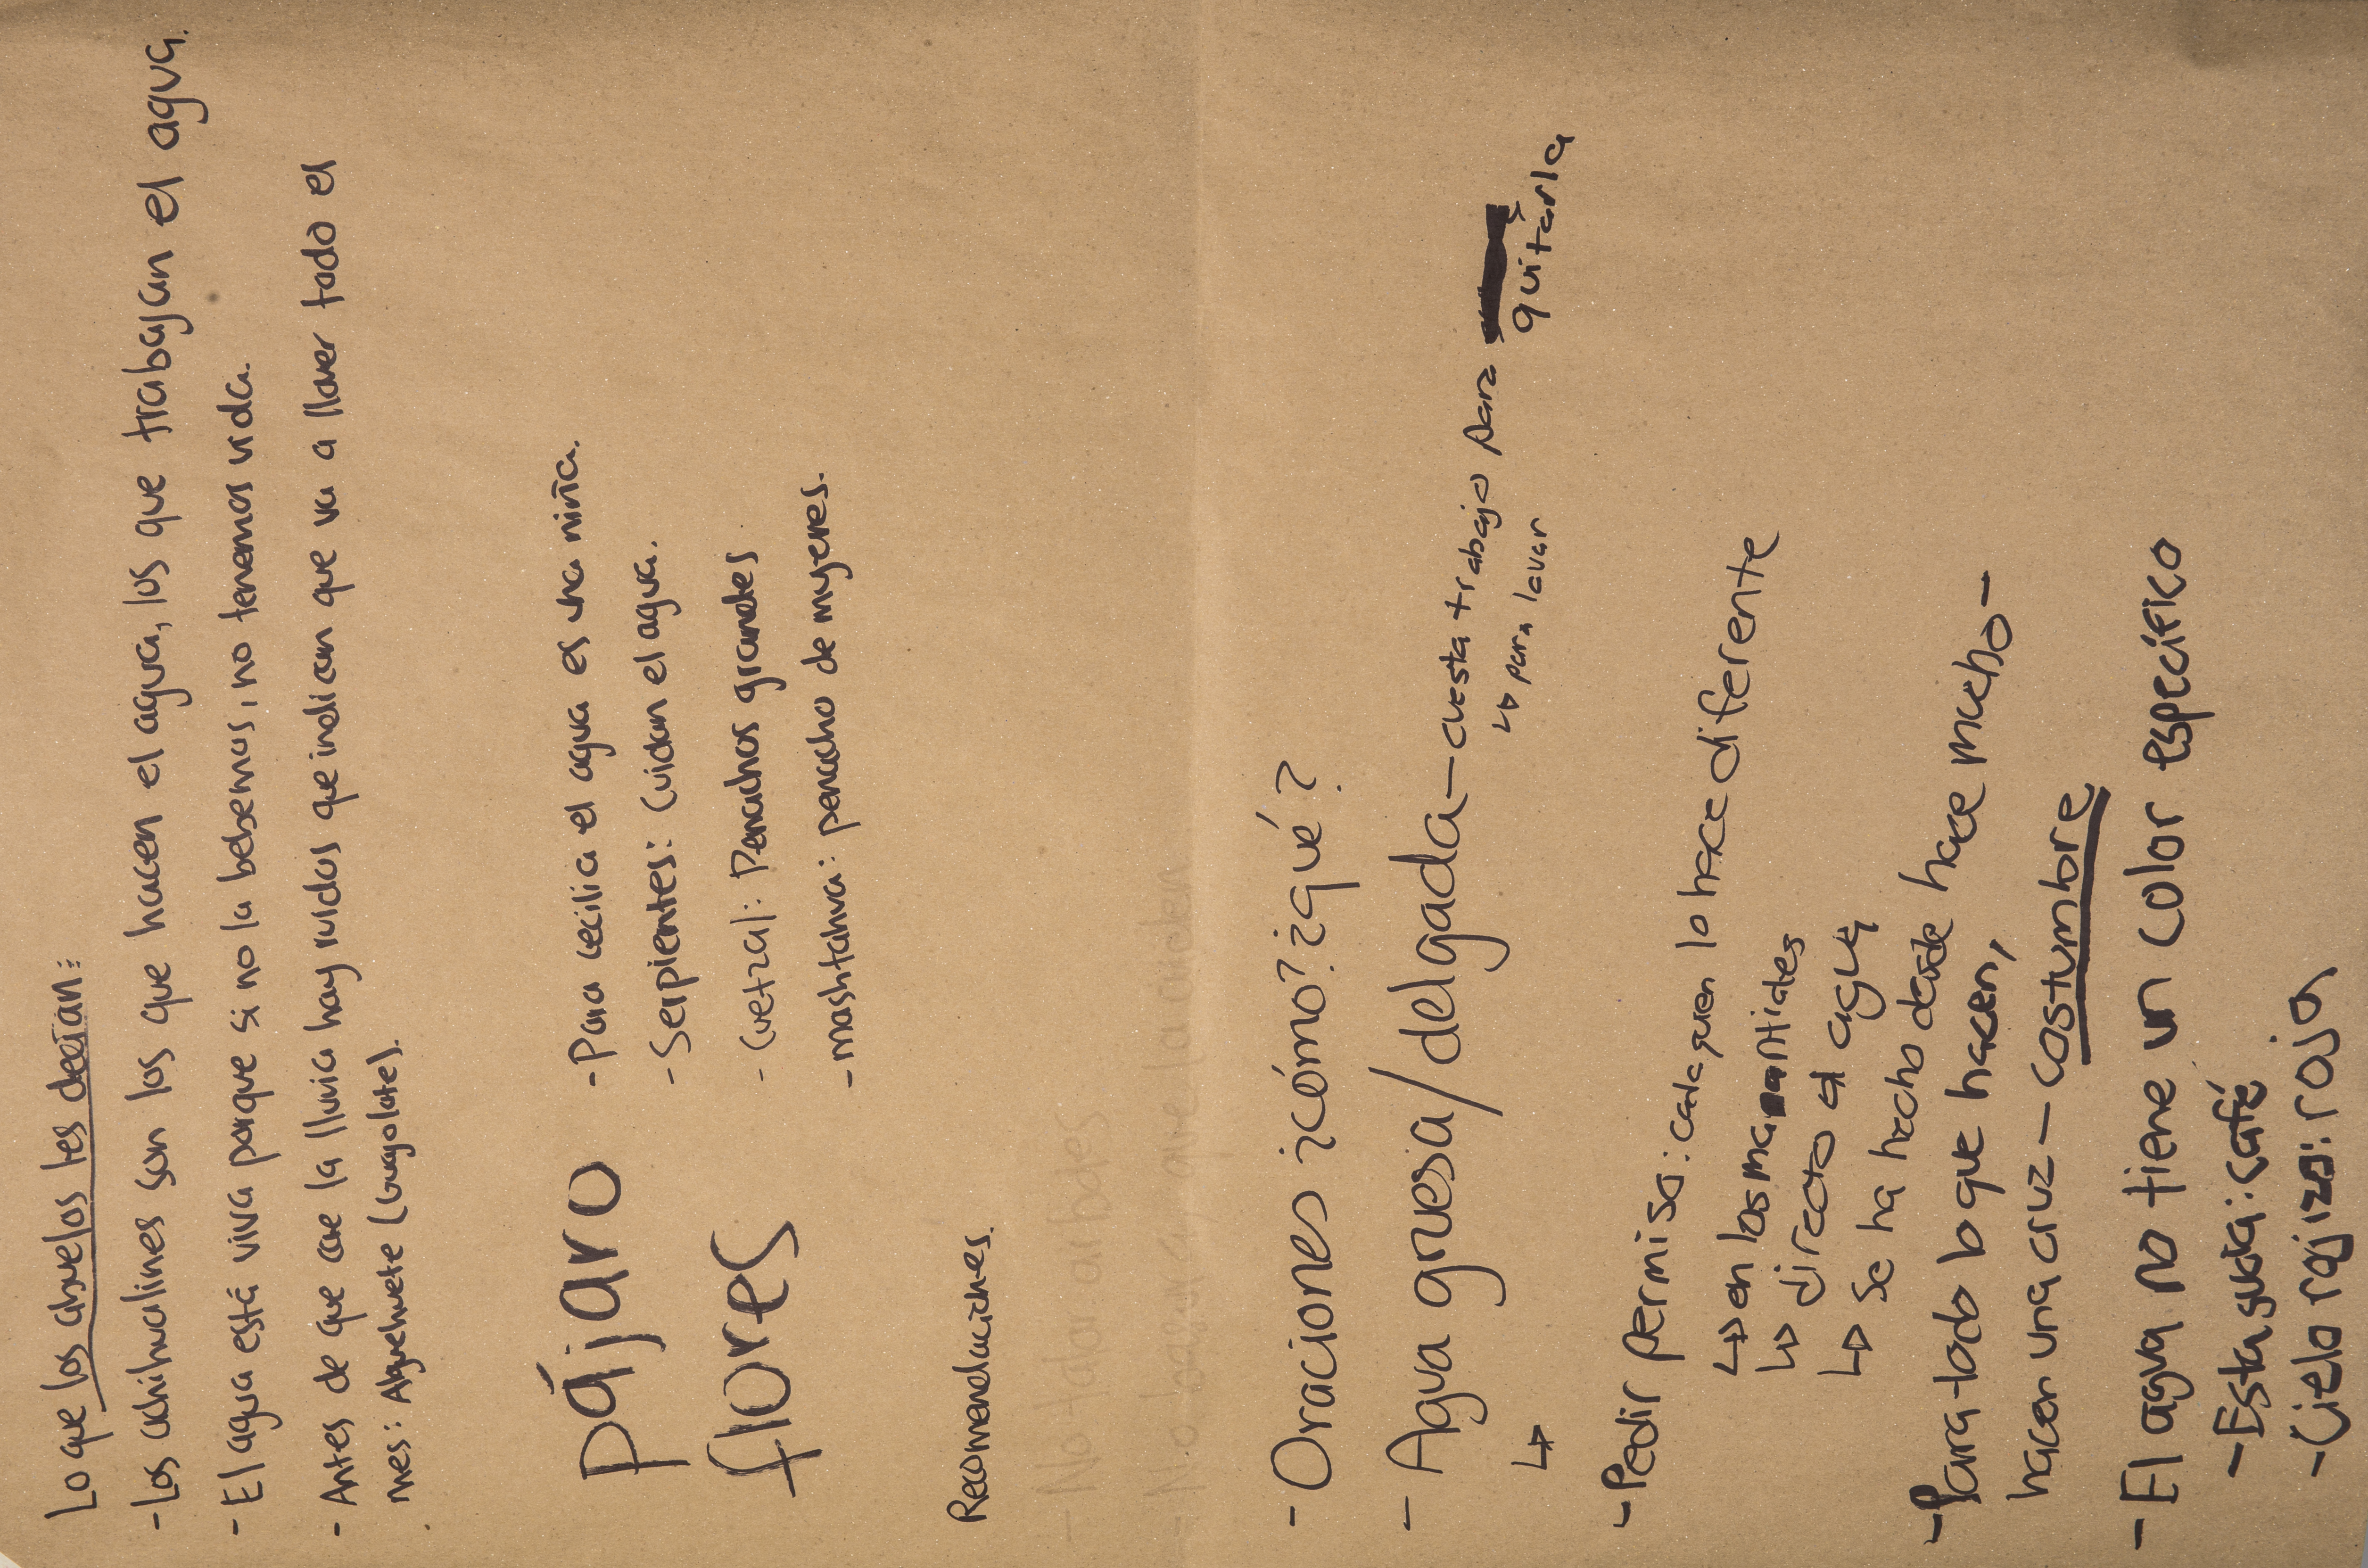 Lo que los abuelos les decían:
- Los achihualines son los que hacen el agua, los que trabajan el agua.
- El agua está viva porque si no la bebemos, no tenemos vida.
- Antes de que cae la lluvia hay ruidos que indican que va a llover todo el
mes: Ahuehuete (guajolote).
pájaro
flores
- Para Cecilia el agua es una niña.
- Serpientes: Cuidan el agua.
- Cuetzal: Penachos grandes
- mashtahua: penacho de mujeres.
Recomendaciones.
- No talar arboles
- No basura, que la cuiden
- Oraciones ¿cómo? ¿qué?
- Agua gruesa/delgada - cuesta trabajo para quitarla
↳ para lavar
↳
- Pedir permiso: cada quien lo hace diferente
↳ en los manantiales
↳ directo al agua
↳ se ha hecho desde hace mucho -
- Para todo lo que hacen,
hacen una cruz - costumbre
- El agua no tiene un color específico
- Esta sucia: café
- Cielo rojizo: roja